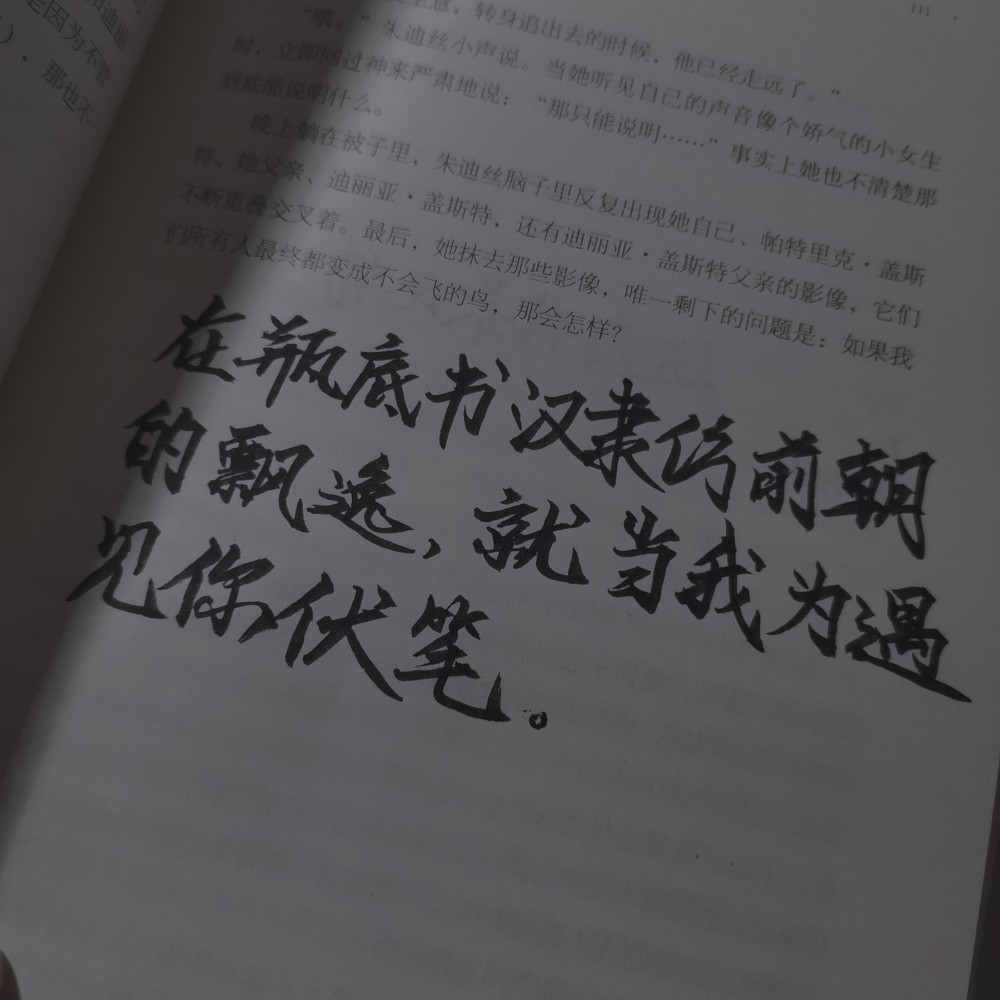 生意，转身追出去的时候，他已经走远了。”
“哦。”朱迪丝小声说。当她听见自己的声音像个娇气的小女生
时，立即回过神来严肃地说：“那只能说明……”事实上她也不清楚那
到底能说明什么。
晚上躺在被子里，朱迪丝脑子里反复出现她自己、帕特里克·盖斯
特、她父亲、迪丽亚·盖斯特，还有迪丽亚·盖斯特父亲的影像，它们
不断重叠交叉着。最后，她抹去那些影像，唯一剩下的问题是：如果我
们所有人最终都变成不会飞的鸟，那会怎样？
在瓶底书汉隶仿前朝
的飘逸，就当我为遇
见你伏笔。
和迪丽
是因为不管
），那也不